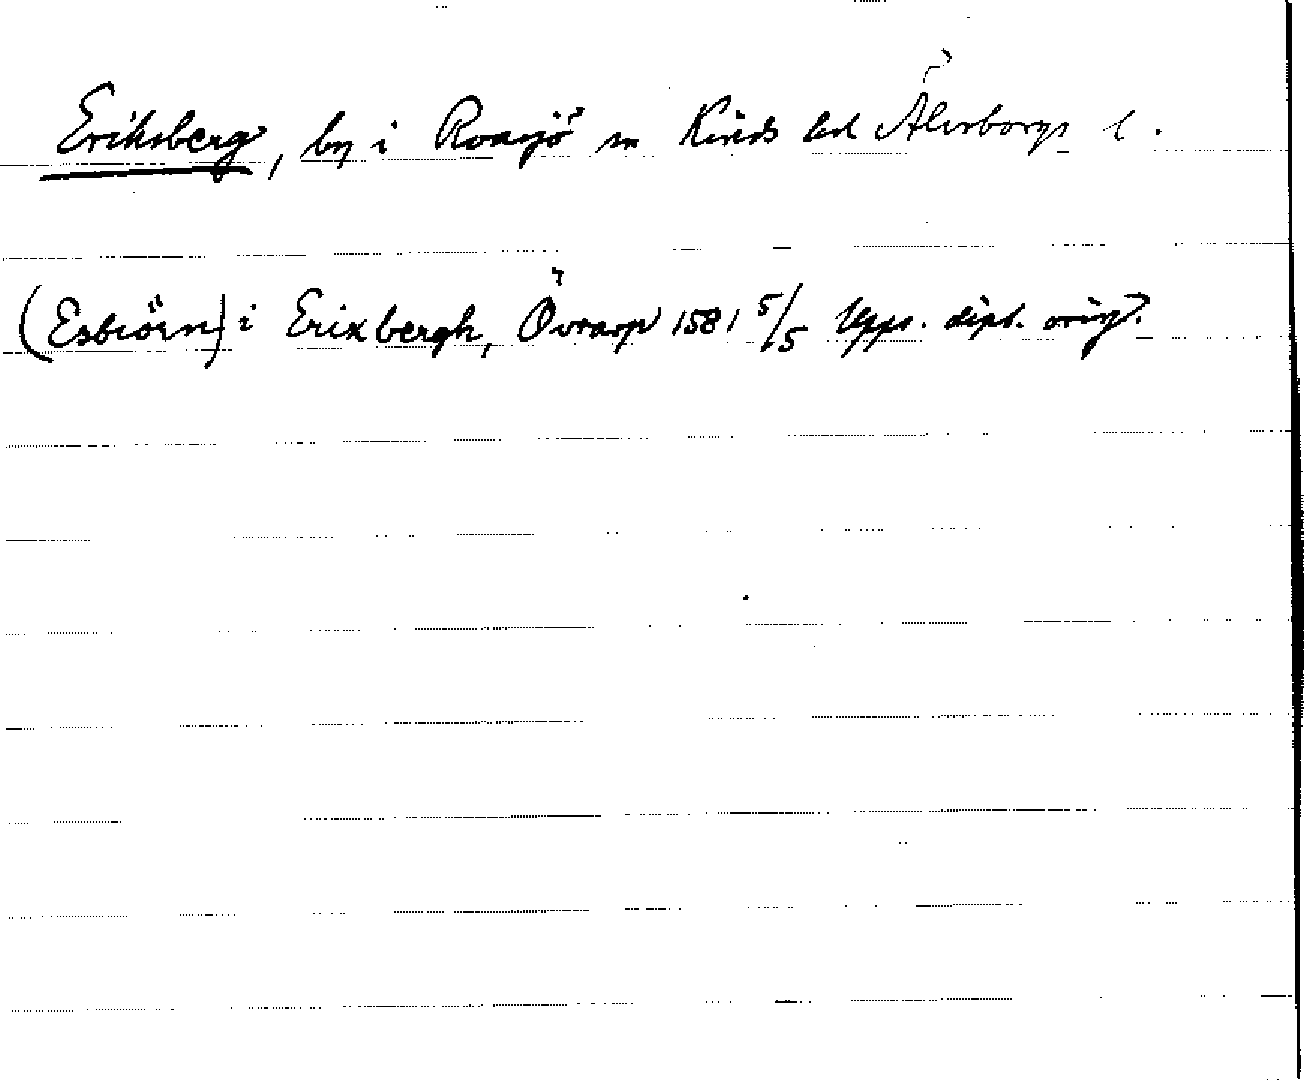 Eriksberg, by i Roasjö sn Kinds hd Älvsborgs l.
(Esbiörn) i Erixbergh, Övrarp 1581 5/5 Upps. dipl. orig.